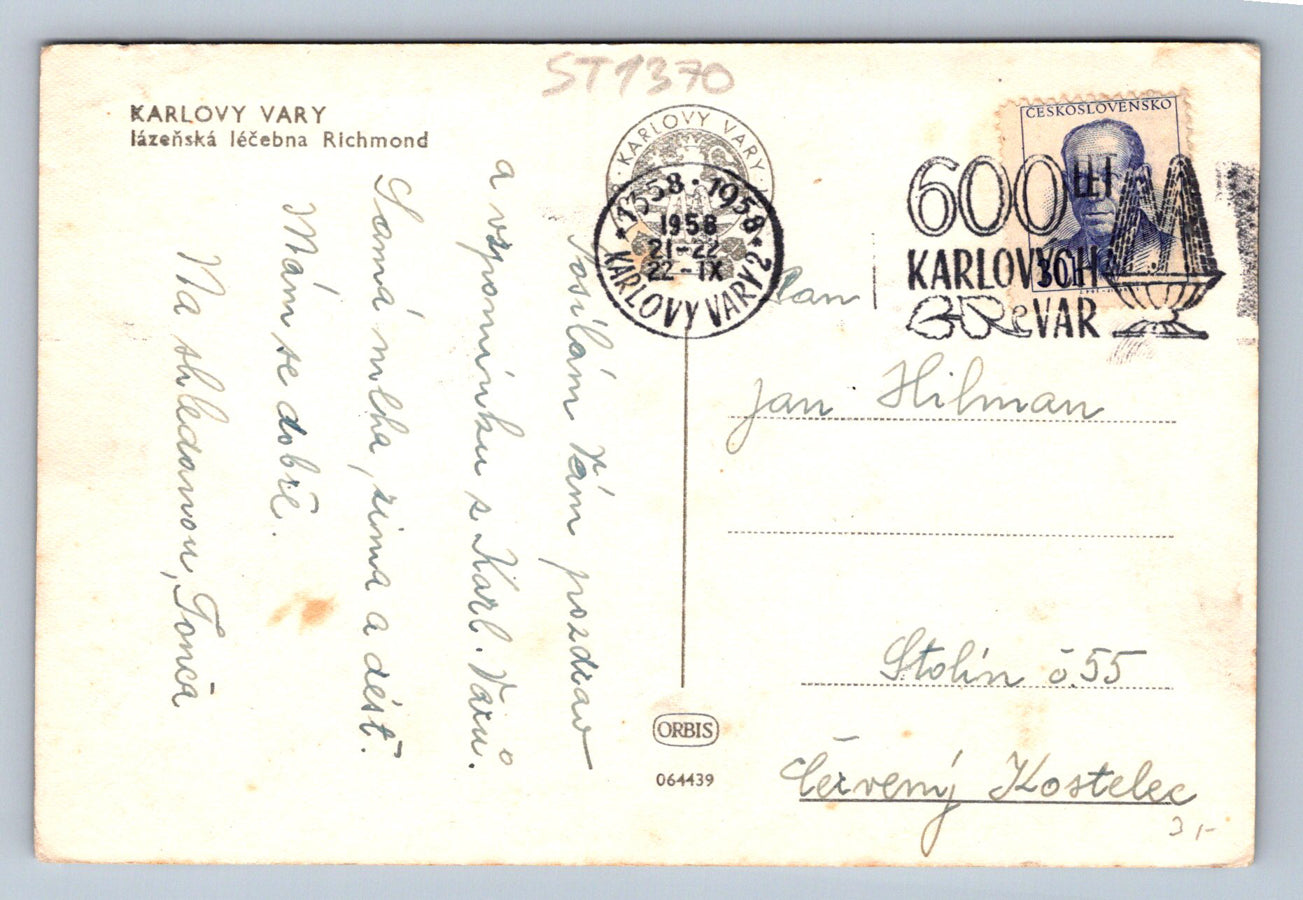 ST1370
KARLOVY VARY
lázeňská léčebna Richmond
KARLOVY VARY
1358 · 1958
1958
21-22
22-IX
KARLOVY VARY 2
ČESKOSLOVENSKO
600 LET
KARLOVÝCH
VAR
30 H
Posílám Vám pozdrav
a vzpomínku s Karl. Varů.
Samá mlha, zima a déšť.
Mám se dobře.
Na shledanou, Tonča
Pan
Jan Hilman
Stolín č. 55
Červený Kostelec
3,-
ORBIS
064439